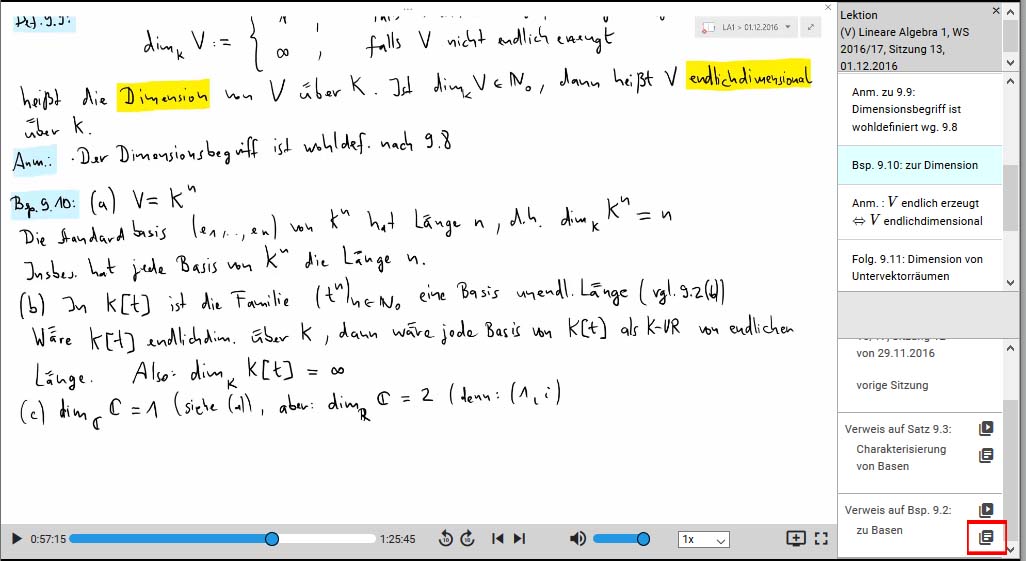 Def. 9.9:
dim_K V := { n ,
∞ , falls V nicht endlich erzeugt
heißt die Dimension von V über K. Ist dim_K V ∈ ℕ₀, dann heißt V endlichdimensional
über K.
Anm.: · Der Dimensionsbegriff ist wohldef. nach 9.8
Bsp. 9.10: (a) V = Kⁿ
Die Standardbasis (e₁,..,eₙ) von Kⁿ hat Länge n, d.h. dim_K Kⁿ = n
Insbes. hat jede Basis von Kⁿ die Länge n.
(b) In K[t] ist die Familie (tⁿ)_{n∈ℕ₀} eine Basis unendl. Länge (vgl. 9.2(b))
Wäre K[t] endlichdim. über K, dann wäre jede Basis von K[t] als K-VR von endlichen
Länge. Also: dim_K K[t] = ∞
(c) dim_ℂ ℂ = 1 (siehe (a)), aber: dim_ℝ ℂ = 2 (denn: (1, i)
LA1 > 01.12.2016
0:57:15
1:25:45
10
10
1x
Lektion
(V) Lineare Algebra 1, WS
2016/17, Sitzung 13,
01.12.2016
Anm. zu 9.9:
Dimensionsbegriff ist
wohldefiniert wg. 9.8
Bsp. 9.10: zur Dimension
Anm. : V endlich erzeugt
⇔ V endlichdimensional
Folg. 9.11: Dimension von
Untervektorräumen
von 29.11.2016
vorige Sitzung
Verweis auf Satz 9.3:
Charakterisierung
von Basen
Verweis auf Bsp. 9.2:
zu Basen